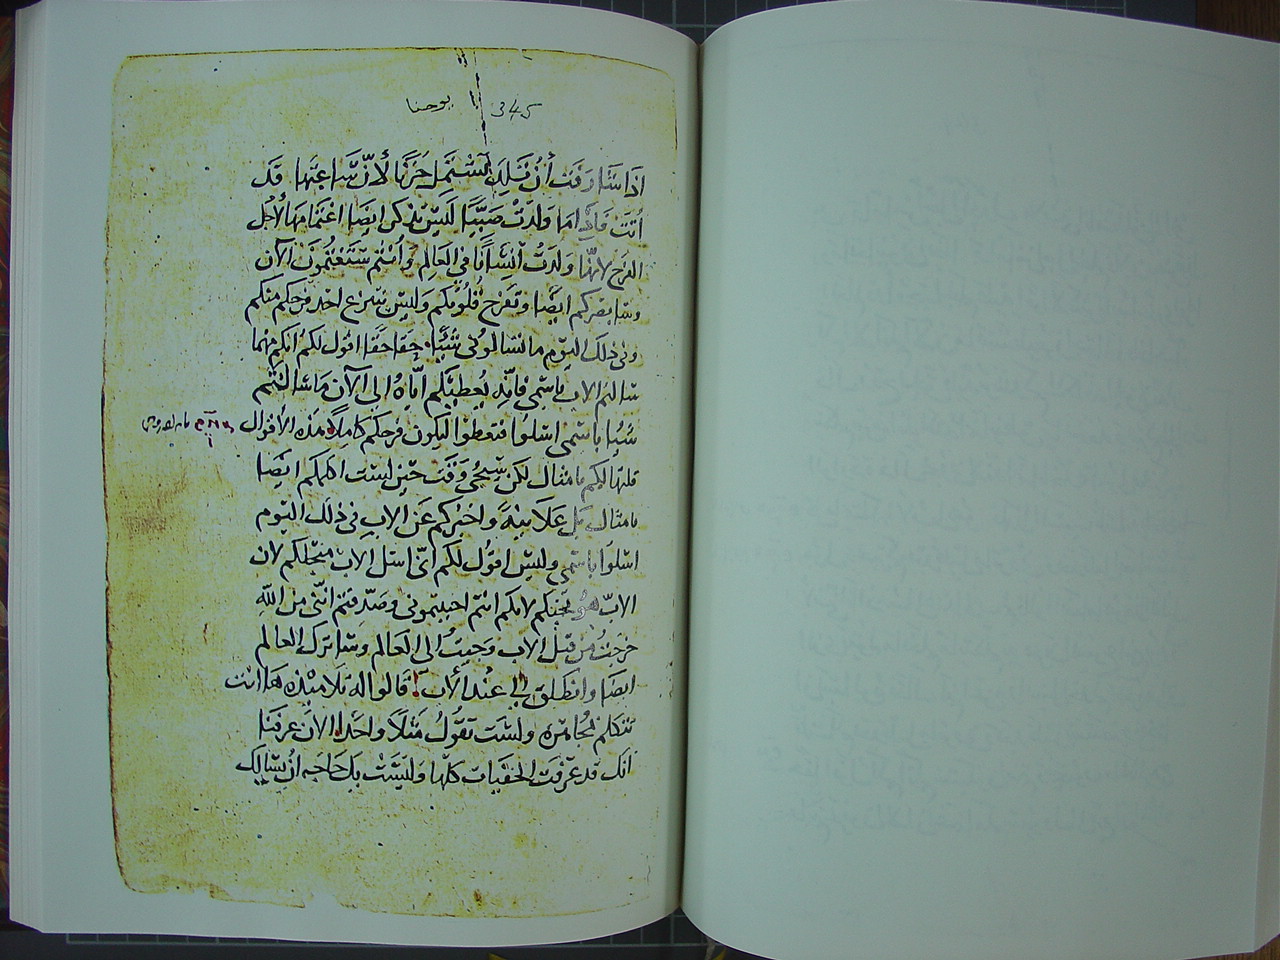 يوحنا 345
اذا شارفت أن تلد تشتمل حزنا لأن ساعتها قد
أتت فاذا ما ولدت صبيا ليس تذكر ايضا اغتمامها لأجل
الفرح لانها ولدت انسانا في العالم وأنتم ستغتمون الآن
وسابصركم ايضا وتفرح قلوبكم وليس ينزع احد فرحكم منكم
وفي ذلك اليوم ما تسالوني شيا. حقا حقا اقول لكم انكم مهما
سالتم الاب باسمي فانه يعطيكم اياه الى الآن ما سالتم
شيا باسمي اسلوا فتعطوا ليكون فرحكم كاملا هذه الأقوال
قلتها لكم بامثال لكن سيجى وقت حين لست اكلمكم ايضا
بامثال بل علانية واخبركم عن الاب في ذلك اليوم
اسلوا باسمي وليس اقول لكم اني اسل الاب منجلكم لان
الاب هو يحبكم لانكم انتم احببتموني وصدقتم انني من الله
خرجت من قبل الاب وجيت الى العالم وساترك العالم
ايضا وانطلق الى عند الأب قالوا له تلاميذه ها انت
تتكلم مجاهرة ولست تقول مثلا واحدا الان عرفنا
انك قد عرفت الخفيات كلها وليست بك حاجه ان يسالك